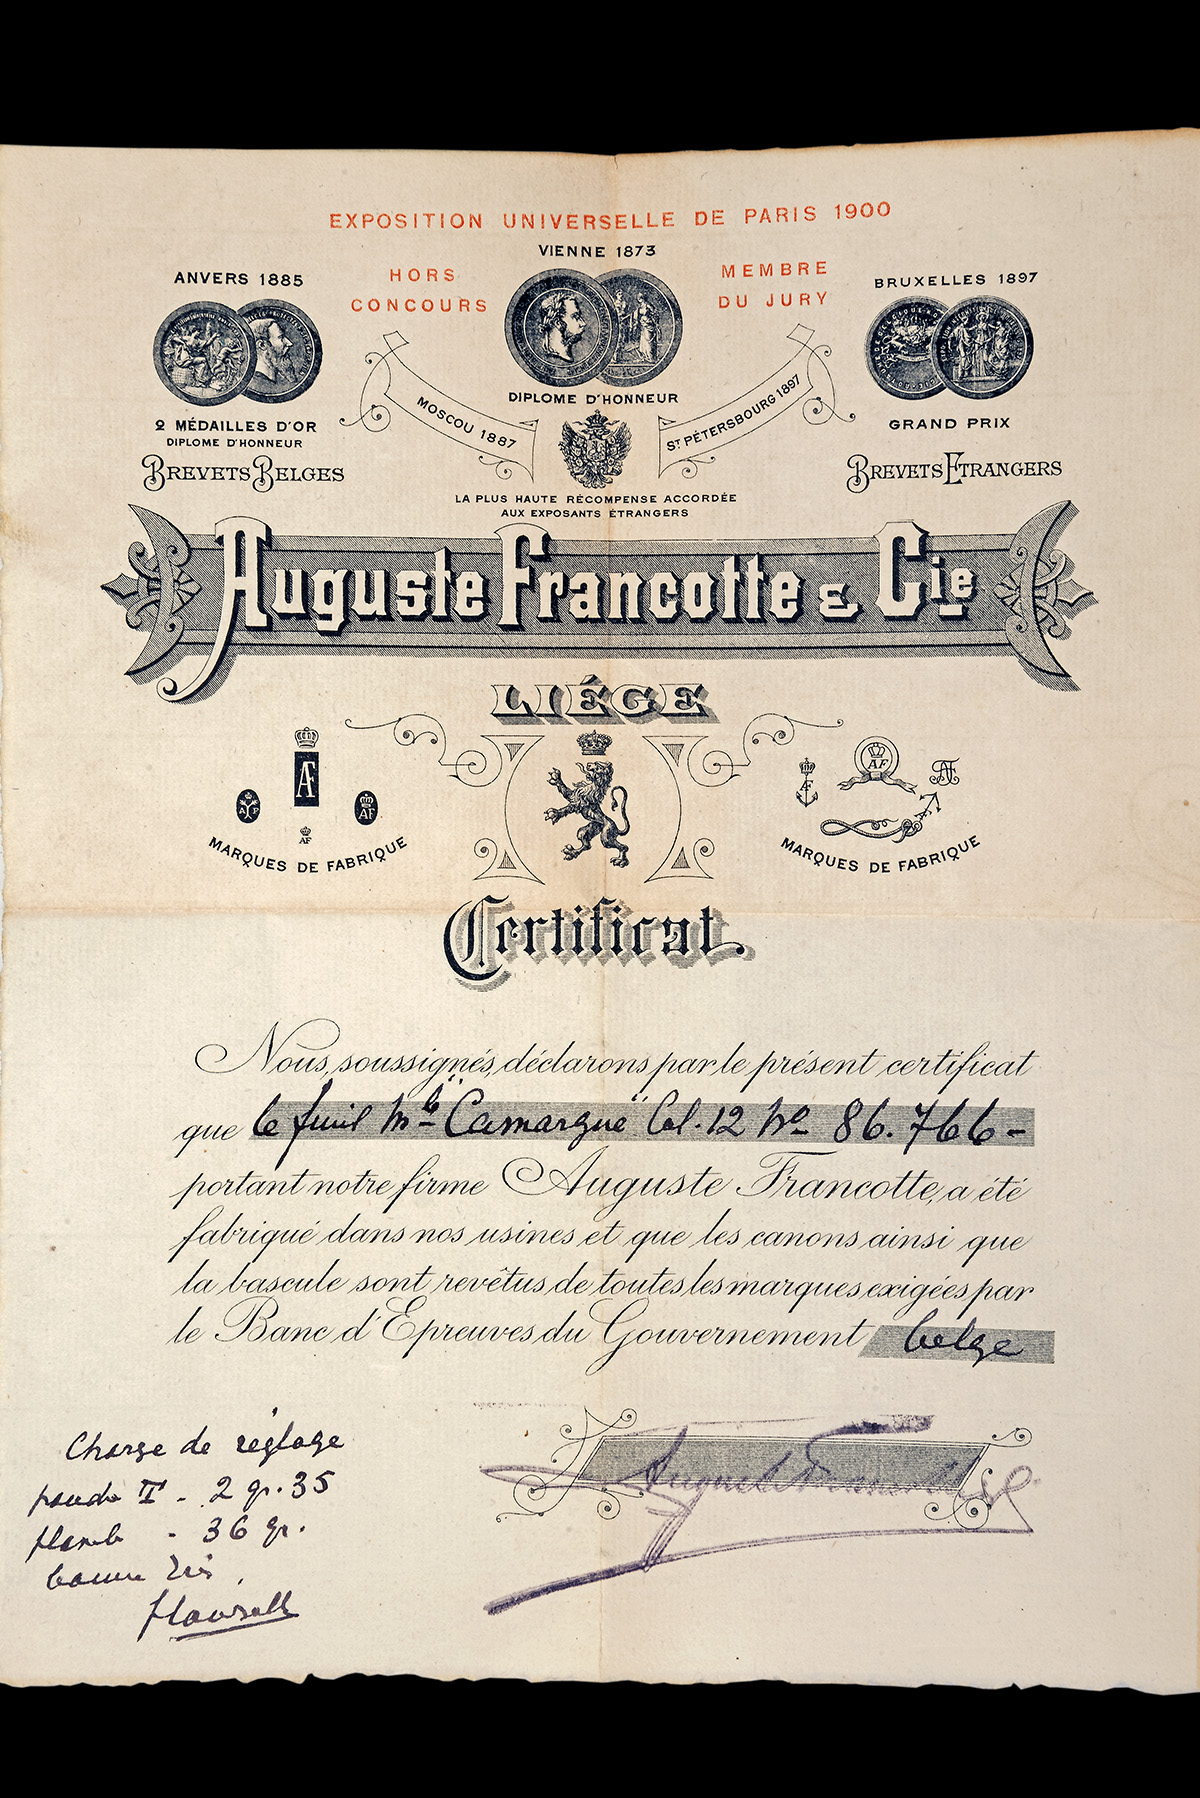 EXPOSITION UNIVERSELLE DE PARIS 1900
VIENNE 1873
ANVERS 1885
HORS CONCOURS
MEMBRE DU JURY
BRUXELLES 1897
DIPLOME D'HONNEUR
MOSCOU 1887
ST PÉTERSBOURG 1897
2 MÉDAILLES D'OR
DIPLOME D'HONNEUR
GRAND PRIX
BREVETS BELGES
BREVETS ETRANGERS
LA PLUS HAUTE RÉCOMPENSE ACCORDÉE
AUX EXPOSANTS ÉTRANGERS
Auguste Francotte & Cie
LIÉGE
AF
AF
AF
AF
MARQUES DE FABRIQUE
AF
AF
AF
MARQUES DE FABRIQUE
Certificat
Nous, soussignés, déclarons par le présent certificat
que le fusil Mle "Camargue" Cal. 12 No 86.766 –
portant notre firme Auguste Francotte, a été
fabriqué dans nos usines et que les canons ainsi que
la bascule sont revêtus de toutes les marques exigées par
le Banc d'Epreuves du Gouvernement belge
Charge de réglage
poudre II - 2 gr. 35
plomb - 36 gr.